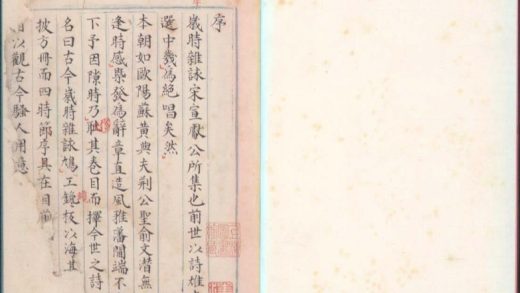 序
歲時雜詠宋宣獻公所集也前世以詩雄
選中幾爲絕唱矣然
本朝如歐陽蘇黃與夫荆公聖俞文潜無
逢時感槩發爲辭章直造風雅藩閫端不
下予因隙時乃取其卷目而擇今世之詩
名曰古今歲時雜詠鳩工鋟板以海其
披方冊而四時節序具在目前
以觀古今騷人用意